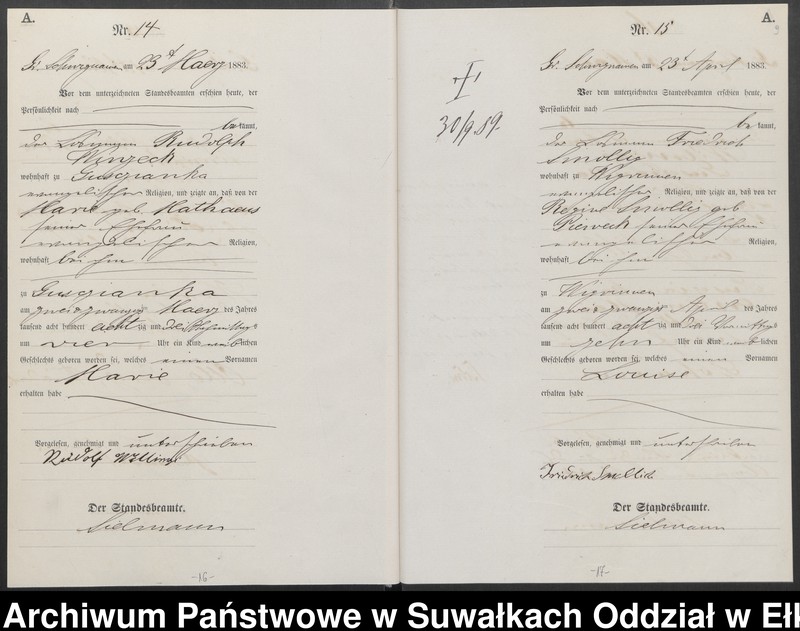 A.
Nr. 14
am 23t Maerz 1883.
Vor dem unterzeichneten Standesbeamten erschien heute, der
Persönlichkeit nach
be kannt,
der Rudolph
wohnhaft zu Gusgianka
evangelischer Religion, und zeigte an, daß von der
Marie geb. Mathaeus
seiner Ehefrau
evangelischer Religion,
wohnhaft bei ihm
zu Gusgianka
am zwei & zwanzig Maerz des Jahres
tausend acht hundert acht zig und drei
um vier Uhr ein Kind weiblichen
Geschlechts geboren worden sei, welches einen Vornamen
Marie
erhalten habe
Vorgelesen, genehmigt und unterschrieben
Rudolf
Der Standesbeamte.
Sielmann
-16-
I
30/9.89.
A.
Nr. 15
am 23t April 1883.
Vor dem unterzeichneten Standesbeamten erschien heute, der
Persönlichkeit nach
be kannt,
der Friedrich
Smollig
wohnhaft zu Wigrinnen
evangelischer Religion, und zeigte an, daß von der
Regine Smollig geb.
Pieweck seiner Ehefrau
evangelischer Religion,
wohnhaft bei ihm
zu Wigrinnen
am zwei & zwanzig April des Jahres
tausend acht hundert acht zig und drei Vormittags
um zehn Uhr ein Kind weiblichen
Geschlechts geboren worden sei, welches einen Vornamen
Louise
erhalten habe
Vorgelesen, genehmigt und unterschrieben
Friedrich Smollich
Der Standesbeamte.
Sielmann
-17-
Archiwum Państwowe w Suwałkach Oddział w Ełk